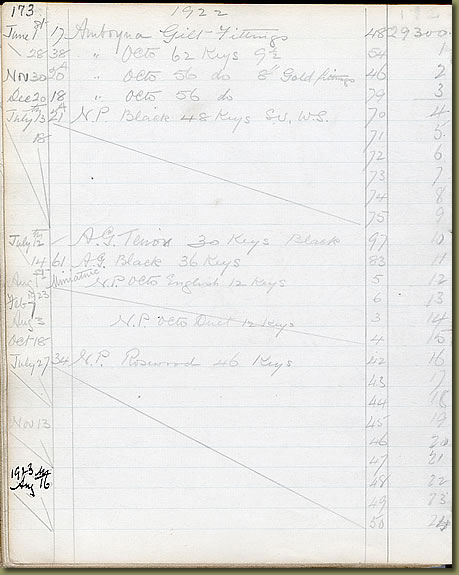 173 1922
June 1st 17 Amboyna Gilt Fittings 48 29300
" 28 38 " Octo 62 Keys 9½ 54 1
Nov 30 20A " Octo 56 do 8" Gold 46 2
Dec 20 18 " Octo 56 do 79 3
July 13 21A N.P. Black 48 Keys S.V. W.S. 70 4
18 71 5
72 6
73 7
74 8
75 9
July 12th A.G. Tenor 30 Keys Black 97 10
14 61 A.G. Black 36 Keys 83 11
Aug 1st Miniature N.P. Octo English 12 Keys 5 12
Feb 7 1923 6 13
Aug 3 N.P. Octo Duet 12 Keys 3 14
Oct 18 4 15
July 27 34 N.P. Rosewood 46 Keys 42 16
43 17
44 18
Nov 13 45 19
46 20
47 21
1923 Aug 16 48 22
49 23
50 24